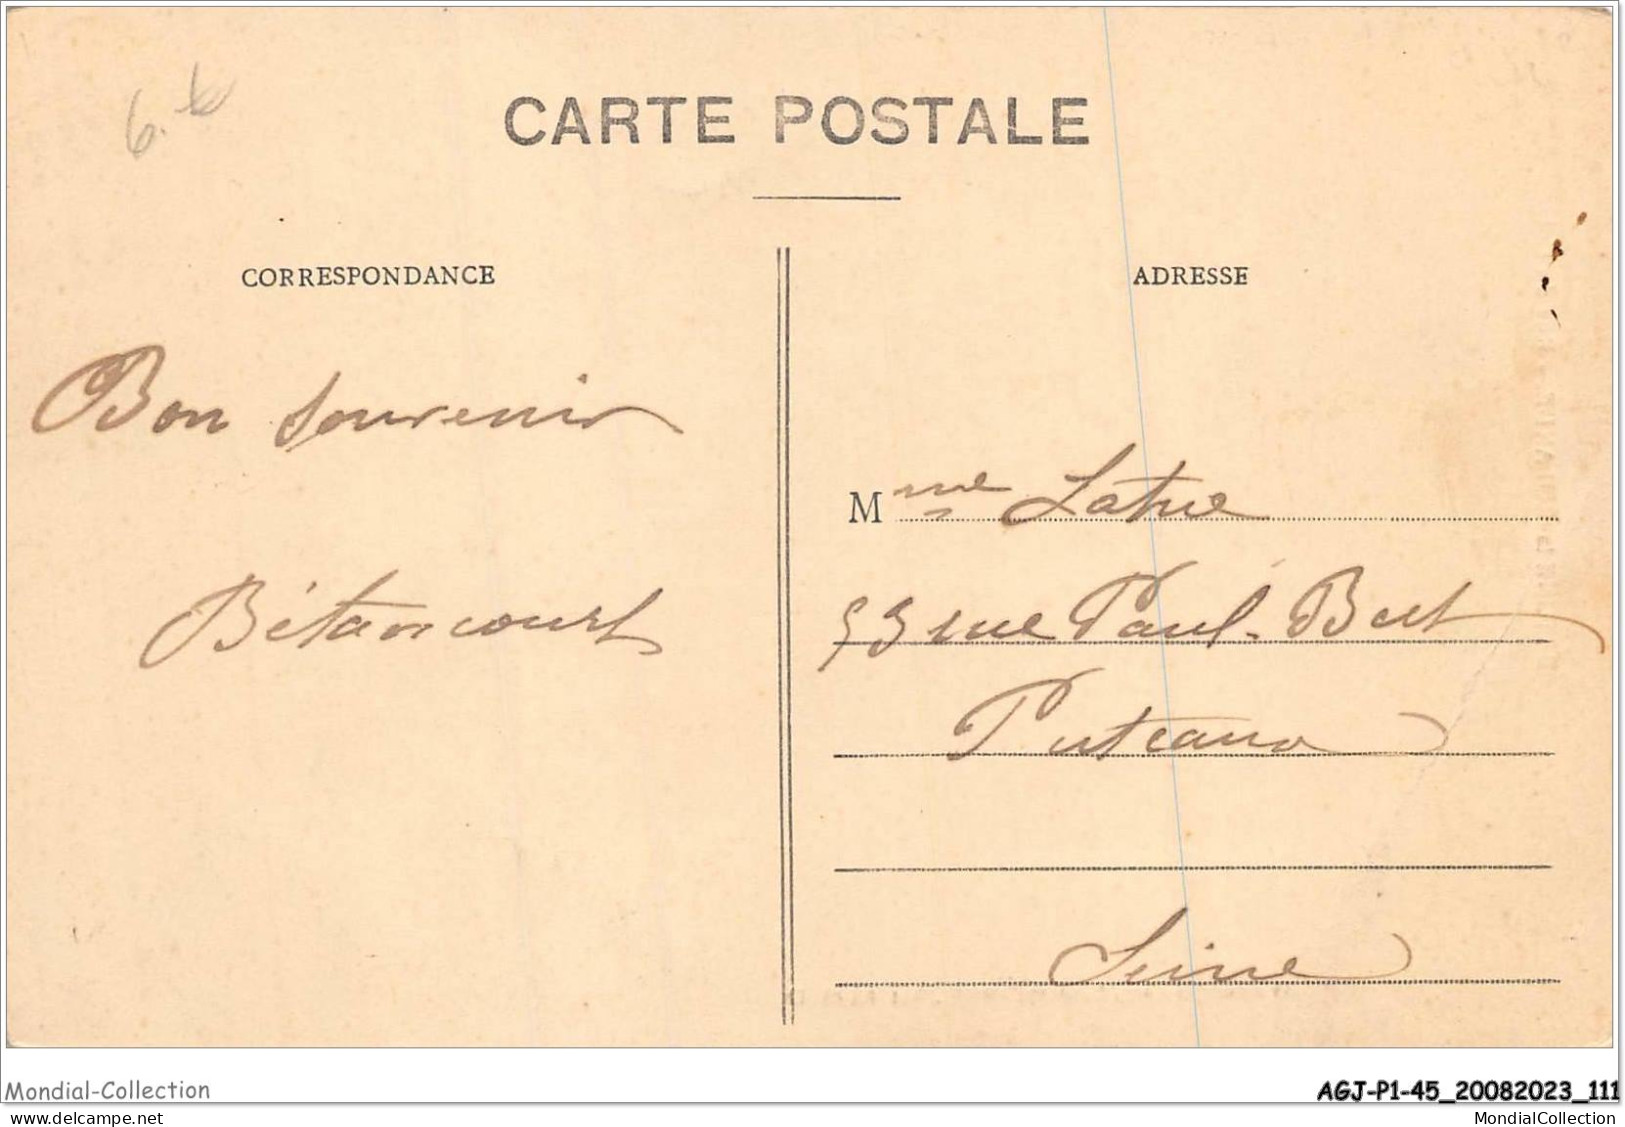 CARTE POSTALE
CORRESPONDANCE
ADRESSE
Bon souvenir
Bétancourt
Mme Latue
53 rue Paul-Bert
Puteaux
Seine
Mondial-Collection
AGJ-P1-45_20082023_111
MondialCollection